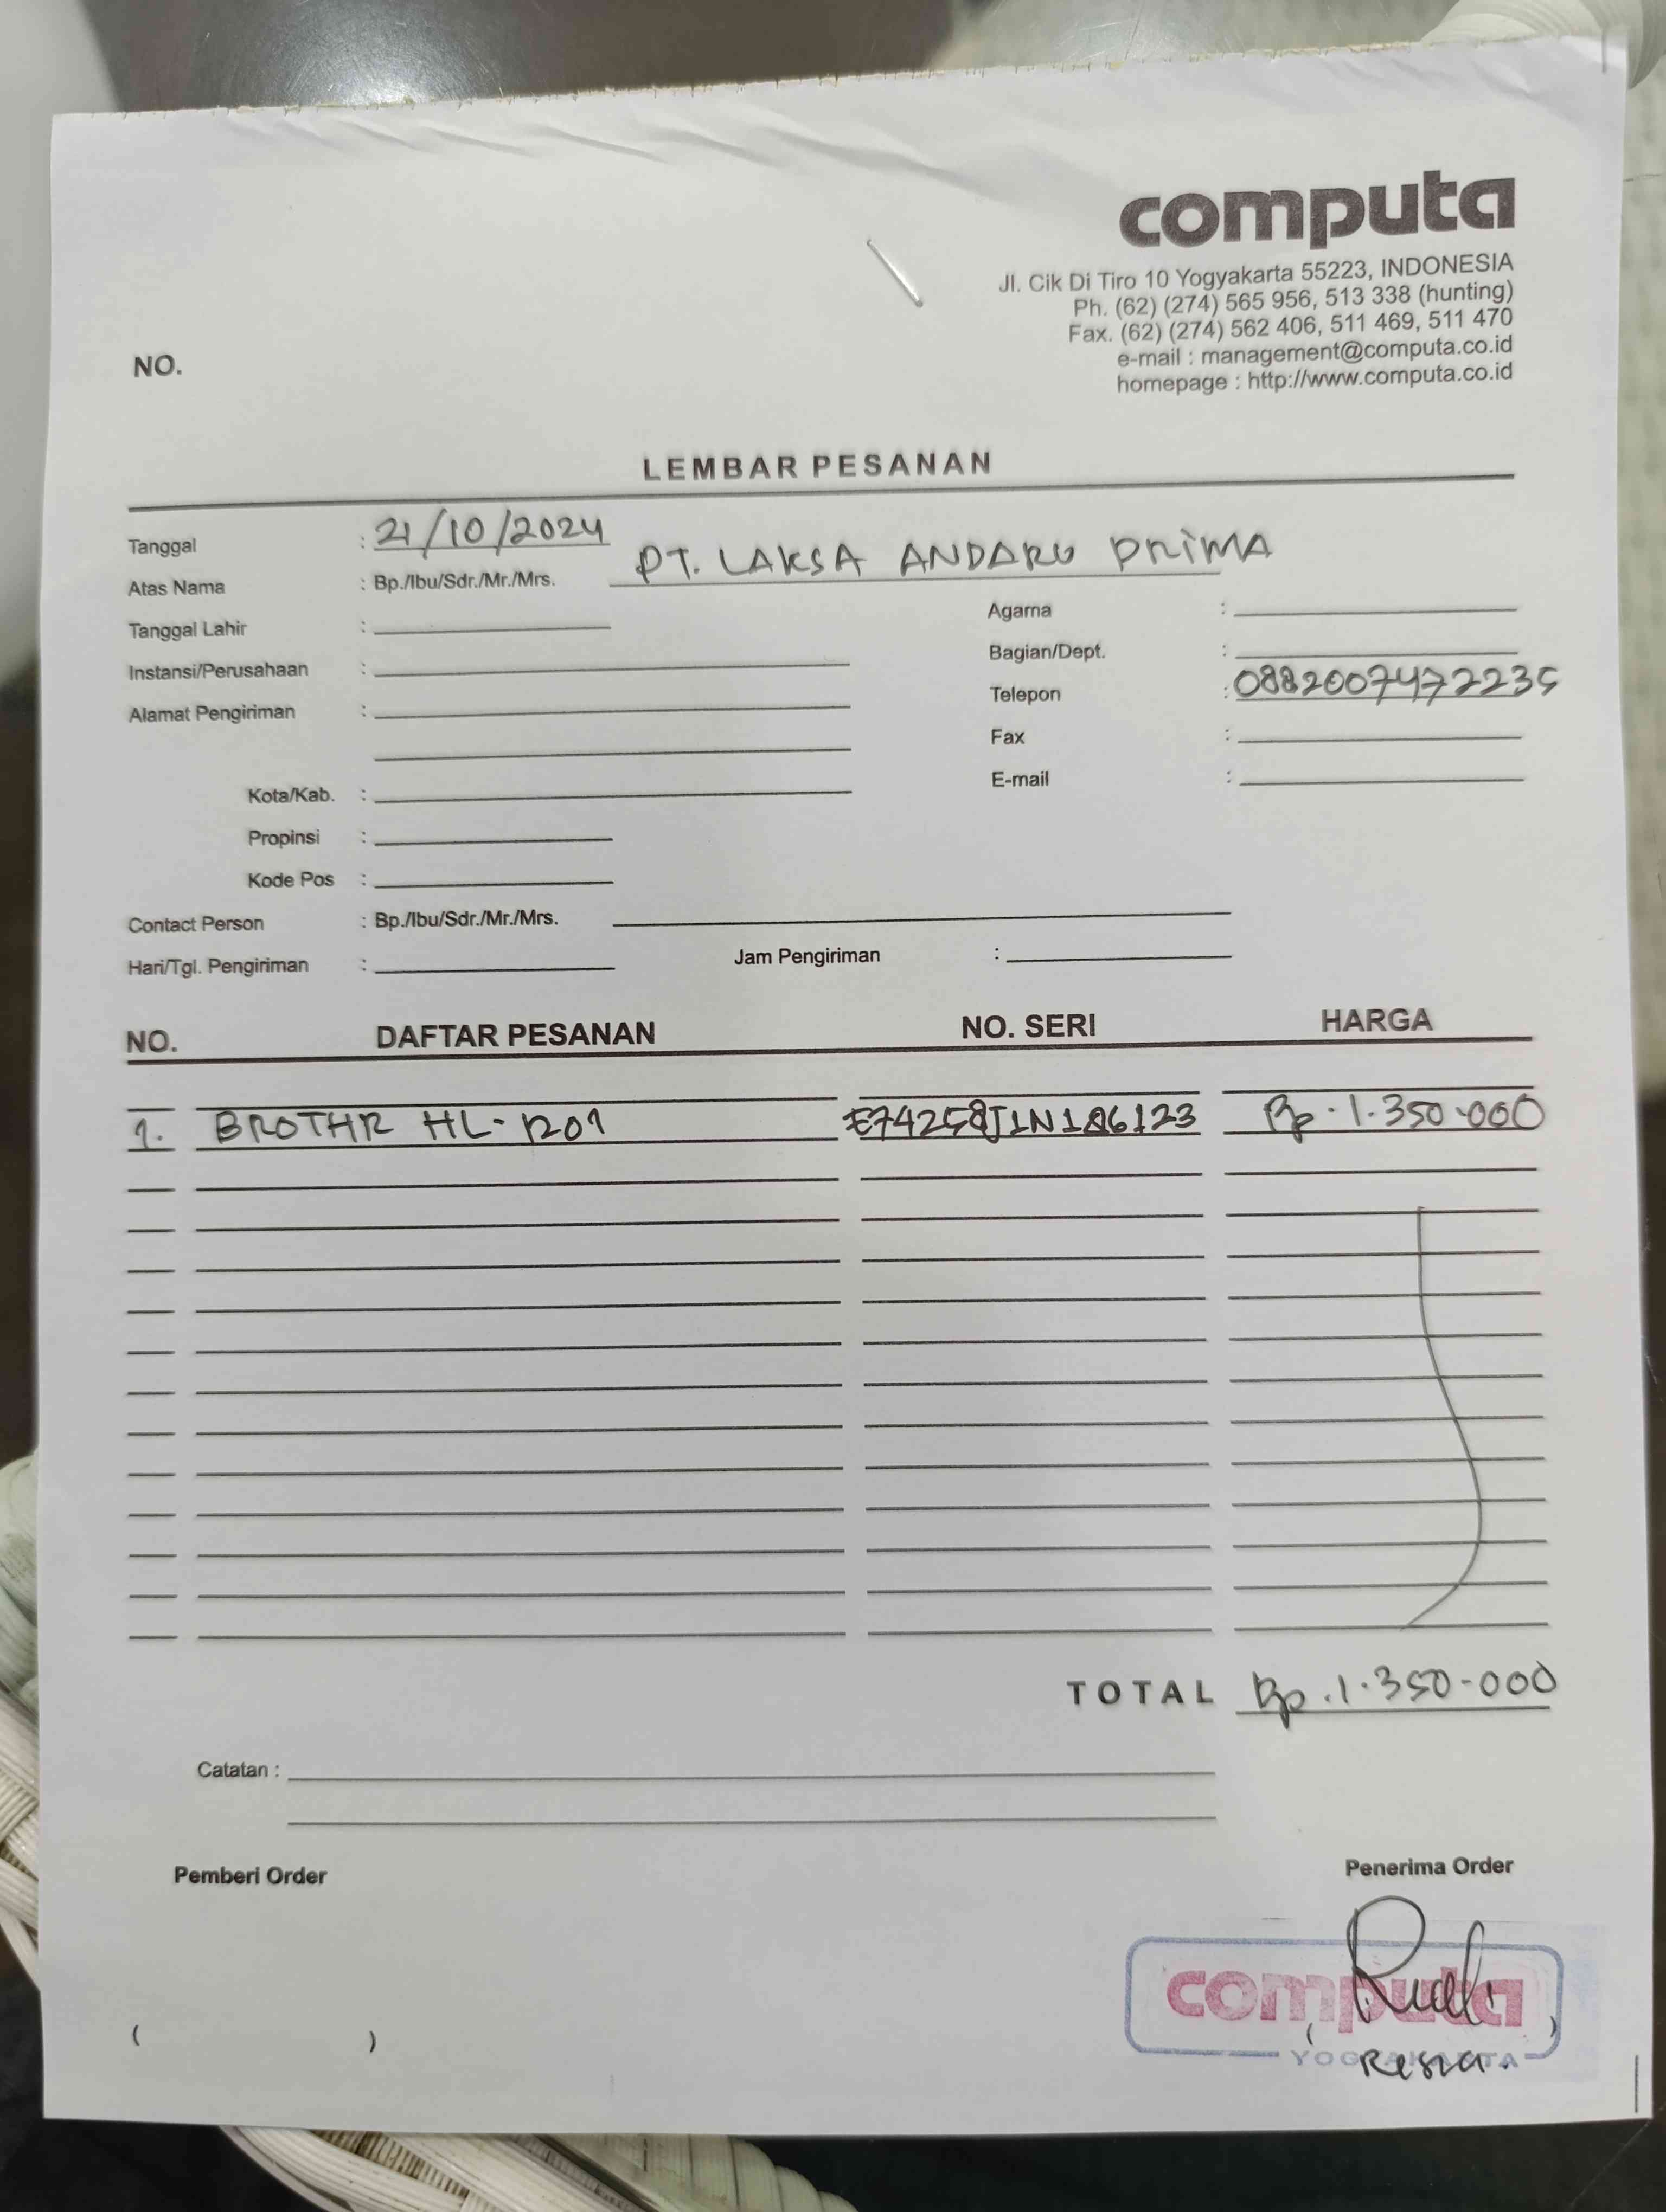 computa
Jl. Cik Di Tiro 10 Yogyakarta 55223, INDONESIA
Ph. (62) (274) 565 956, 513 338 (hunting)
Fax. (62) (274) 562 406, 511 469, 511 470
e-mail : management@computa.co.id
homepage : http://www.computa.co.id
NO.
LEMBAR PESANAN
Tanggal : 21/10/2024
Atas Nama : Bp./Ibu/Sdr./Mr./Mrs. PT. LAKSA ANDARU PRIMA
Tanggal Lahir :
Agama :
Instansi/Perusahaan :
Bagian/Dept. :
Alamat Pengiriman :
Telepon : 0882007472235
Fax :
E-mail :
Kota/Kab. :
Propinsi :
Kode Pos :
Contact Person : Bp./Ibu/Sdr./Mr./Mrs.
Hari/Tgl. Pengiriman : Jam Pengiriman :
NO. DAFTAR PESANAN NO. SERI HARGA
1. BROTHR HL-1201 E74258J1N186123 Rp.1.350.000
TOTAL Rp.1.350.000
Catatan :
Pemberi Order Penerima Order
computa
YOGYAKARTA
( ) ( )
Resia.